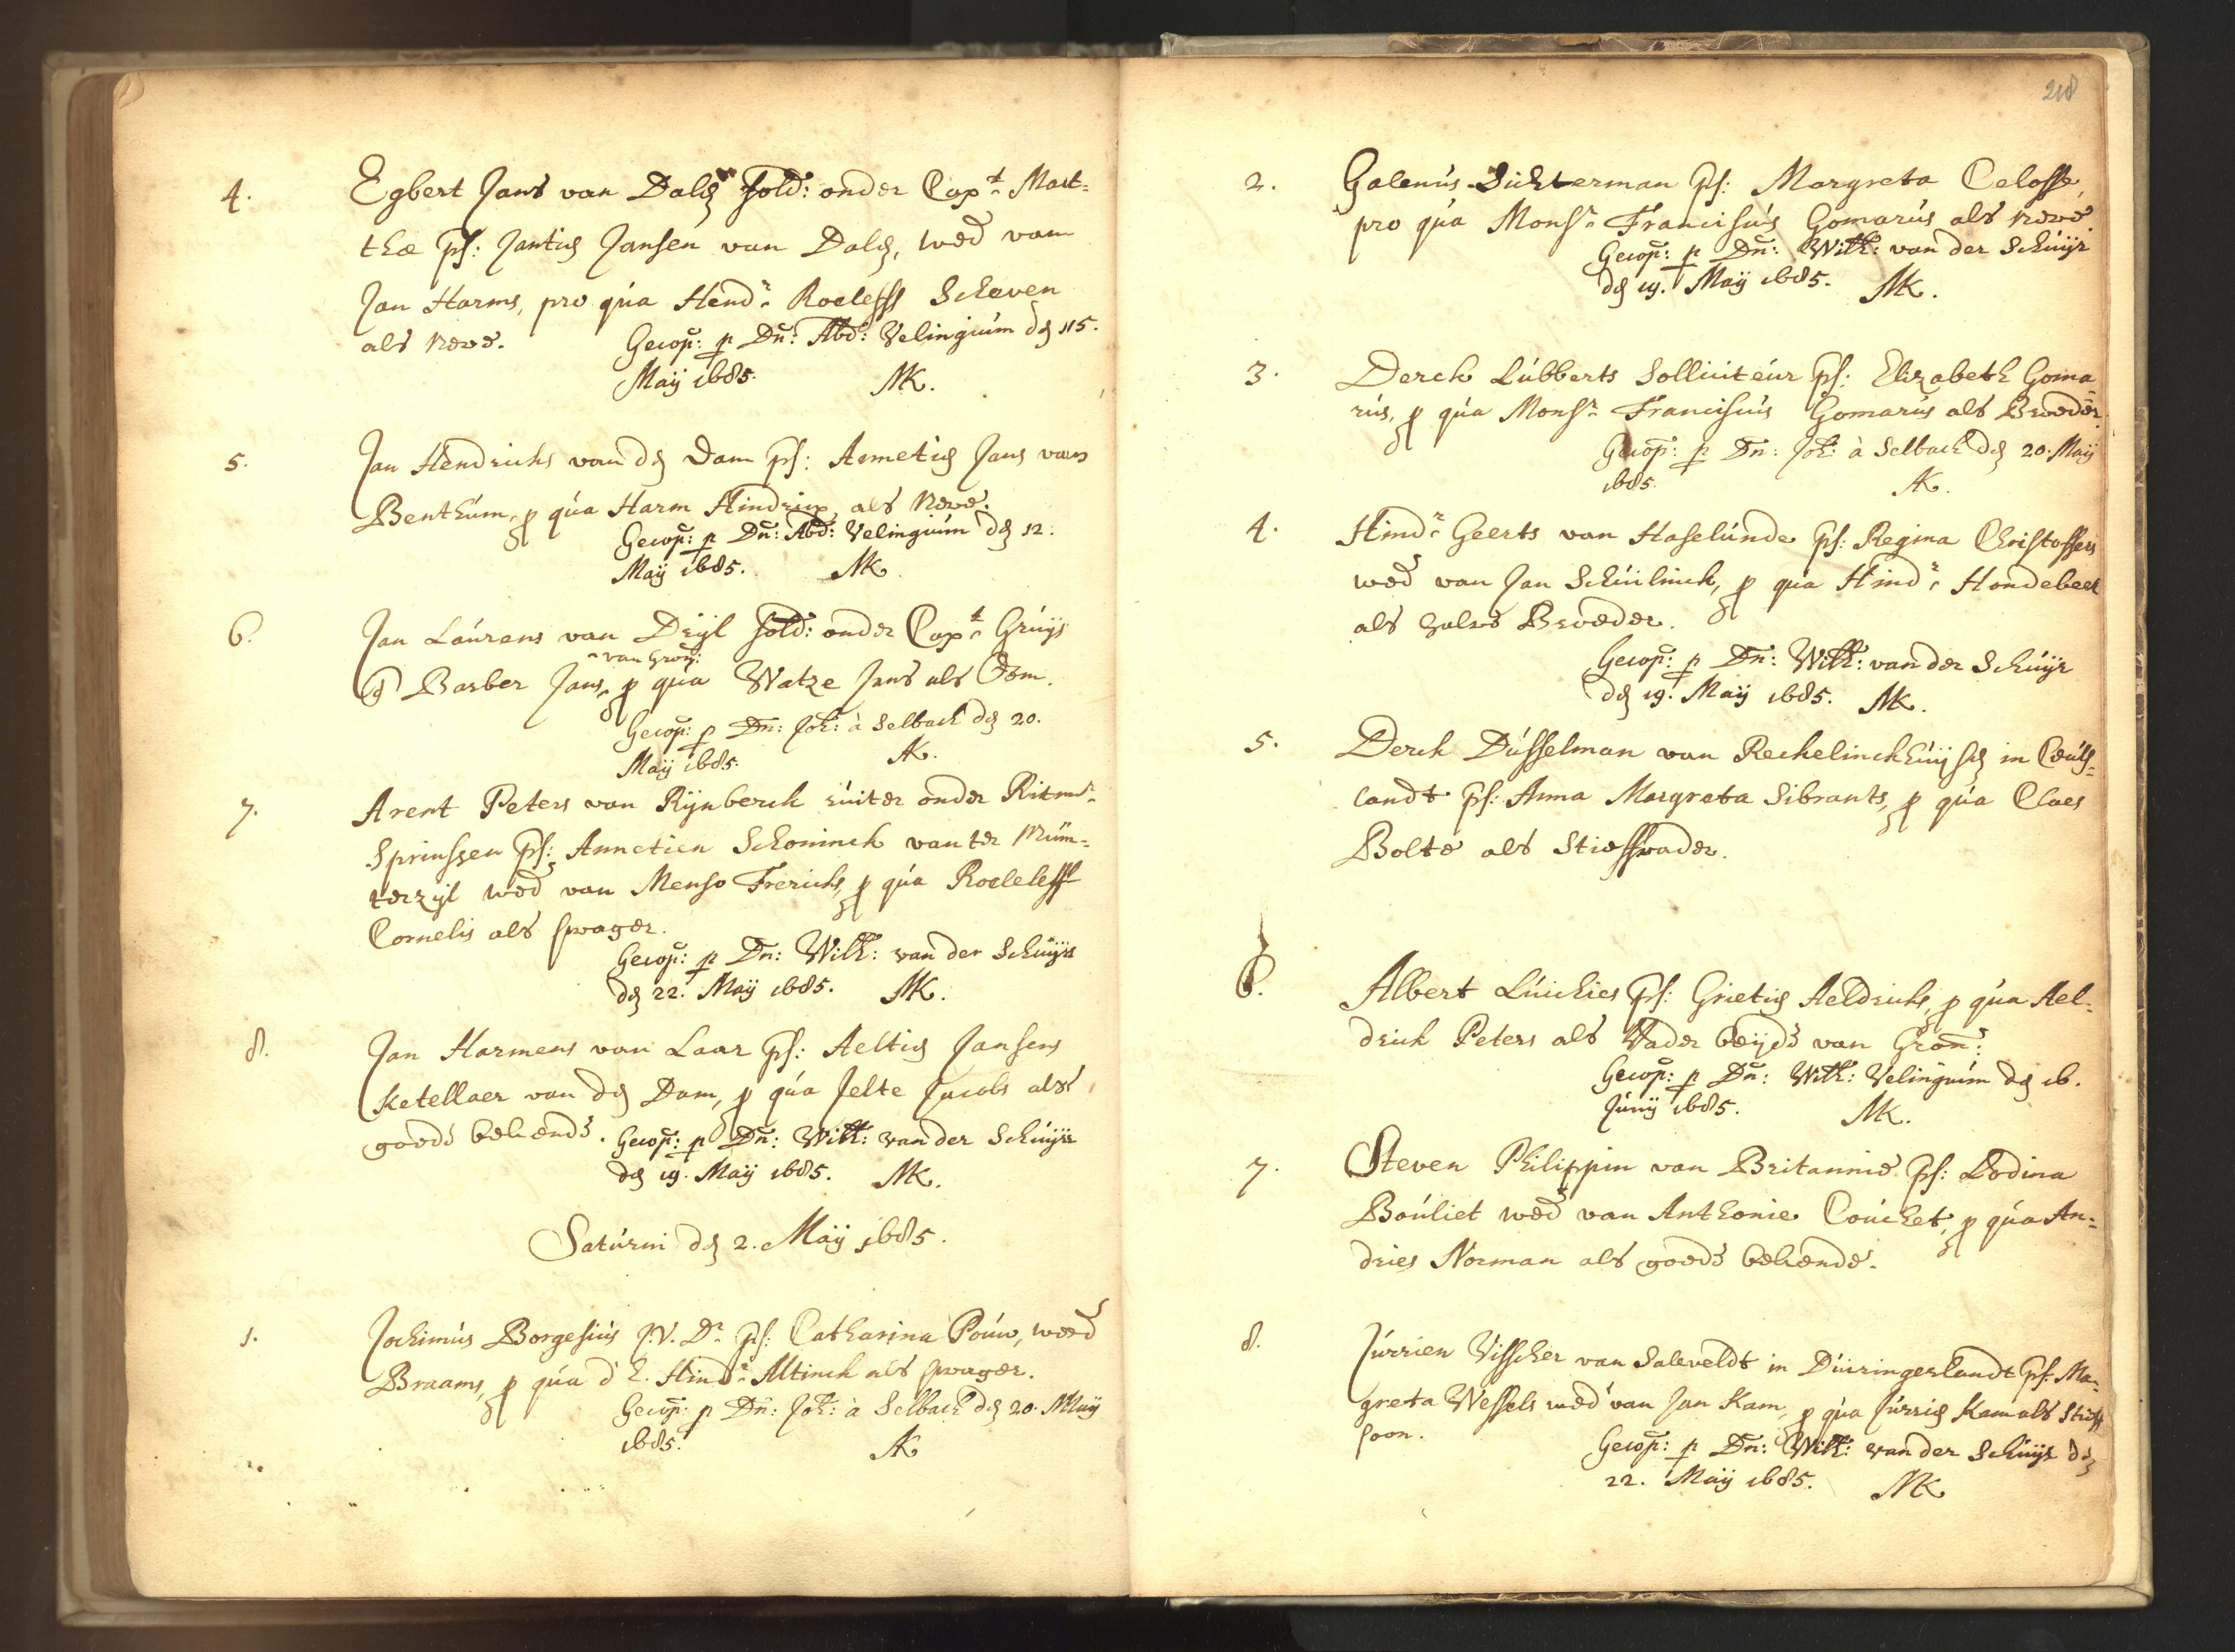 4. Egbert Jans van Dalen sold: onder Capt. Mart=
thæ ps: Jantien Jansen van Dalen, wed van
Jan Harms, pro qua Hendr. Roeleffs Schaven
als neve. Gecop: p Dn: Abd: Velingium den 15.
Maij 1685. NK.
5. Jan Hendrichs van den Dam ps: Annetien Jans van
Benthum, p qua Harm Hindrix, als Neve.
Gecop: p Dn: Abd: Velingium den 12.
Maij 1685. NK
6. Jan Laurens van Deijl sold: onder Capt. Gruijs
van Gron:
ps Barber Jans, p qua Watze Jans als Oom.
Gecop: p Dn: Joh: à Selbach den 20.
Maij 1685. NK.
7. Arent Peters van Rijnberck ruiter onder Ritmr.
Sprinssen ps: Annetien Schoninck van ter Mun=
terzijl wed van Menso Frerichs, p qua Roeleleff
Cornelis als swager.
Gecop: p Dn: Wilh: van der Schuijr
den 22. Maij 1685. NK.
8. Jan Harmens van Laar ps: Aeltien Jansens
Ketellaer van den Dam, p qua Jelte Jacobs als
goede bekende. Gecop: p Dn: Wilh: van der Schuijr
den 19. Maij 1685. NK.
Saturni den 2. Maij 1685.
1. Jochimus Borgesius J.V.Dr. ps: Catharina Pouw, wed
Braams, p qua d'E. Hindr. Altinck als swager.
Gecop: p Dn: Joh: à Selbach den 20. Maij
1685. NK
218
2. Galenus Sichterman ps: Margreta Celosse,
pro qua Monsr. Franciscus Gomarus als neve.
Gecop: p Dn: Wilh: van der Schuijr
den 19. Maij 1685. NK.
3. Derck Lubberts Solliciteur ps: Elizabeth Goma=
rus, p qua Monsr. Franciscus Gomarus als Broeder.
Gecop: p Dn: Joh: à Selbach den 20. Maij
1685. NK.
4. Hindr. Geerts van Haselunde ps: Regina Christoffers
wed van Jan Schuilinck, p qua Hindr. Hondebeek
als halve Broeder.
Gecop: p Dn: Wilh: van der Schuijr
den 19. Maij 1685. NK.
5. Derck Dusselman van Reckelinckhuijsen in Ceuls=
landt ps: Anna Margreta Sibrants, p qua Claes
Bolte als Stieffvader.
6. Albert Luickies ps: Grietien Aeldrichs, p qua Ael=
drich Peters als Vader beijde van Gron:
Gecop: p Dn: Wilh: Velingium den 16.
Junij 1685. NK.
7. Steven Philippin van Britannie ps: Dodina
Bouliet wed van Anthonie Couchet, p qua An=
dries Norman als goede bekende.
8. Jurrien Visscher van Saleveldt in Duiringerlandt ps: Mar=
greta Wessels wed van Jan Kam, p qua Jurrien Kam als Stieff
soon.
Gecop: p Dn: Wilh: van der Schuijr den
22. Maij 1685. NK